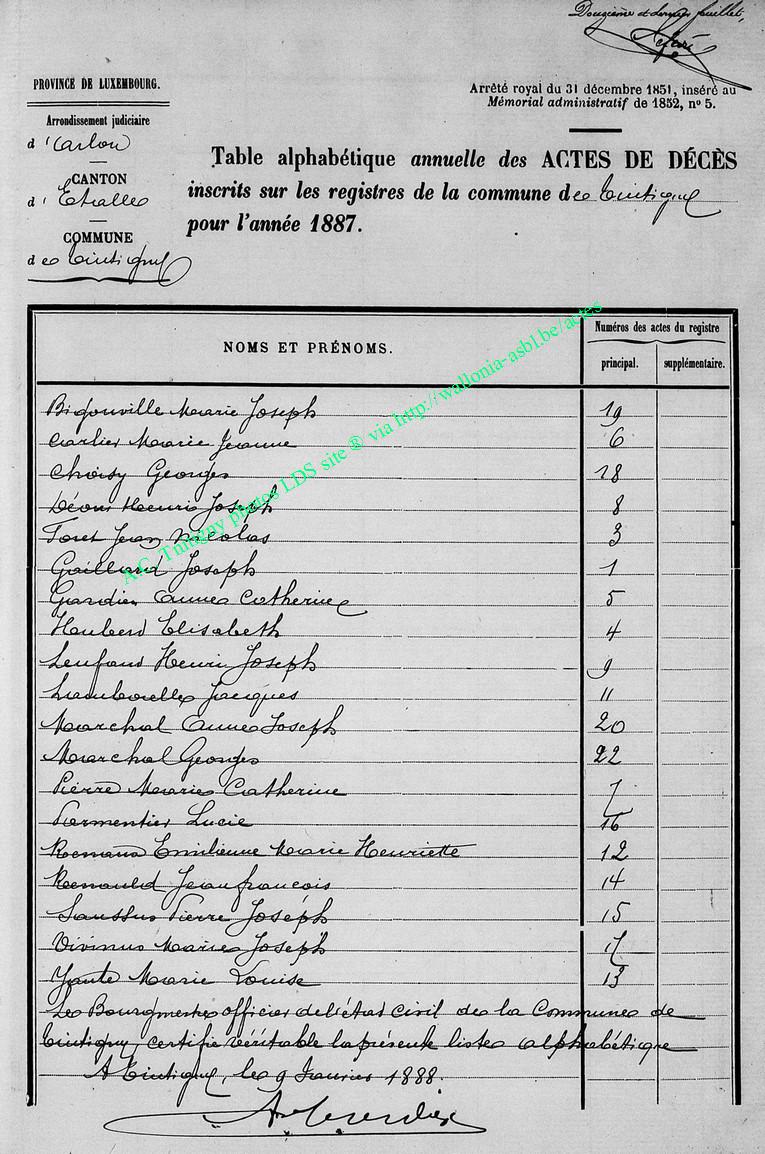 Douzième et dernier feuillet,
PROVINCE DE LUXEMBOURG.
Arrondissement judiciaire
d'Arlon
CANTON
d'Etalle
COMMUNE
de Tintigny
Arrêté royal du 31 décembre 1851, inséré au
Mémorial administratif de 1852, n° 5.
Table alphabétique annuelle des ACTES DE DÉCÈS
inscrits sur les registres de la commune de Tintigny
pour l'année 1887.
NOMS ET PRÉNOMS.
Numéros des actes du registre
principal.
supplémentaire.
Bigonville Marie Joseph 19
Carlier Marie Jeanne 6
Choisy Georges 18
Déom Henri Joseph 8
Foret Jean Nicolas 3
Gaillard Joseph 1
Gardien Anne Catherine 5
Hubert Elisabeth 4
Lenfant Henri Joseph 9
Jacques 11
Marchal Anne Joseph 20
Marchal Georges 22
Pierre Marie Catherine 7
Parmentier Lucie 16
Emilienne Marie Henriette 12
Renauld Jean françois 14
Saussus Pierre Joseph 15
Vivinus Marie Joseph 17
Marie Louise 13
Le Bourgmestre officier de l'état civil de la Commune de
Tintigny, certifie véritable la présente liste alphabétique
A Tintigny, le 9 Janvier 1888.
A.C. Tintigny photos LDS site ® via http://wallonia-asbl.be/actes